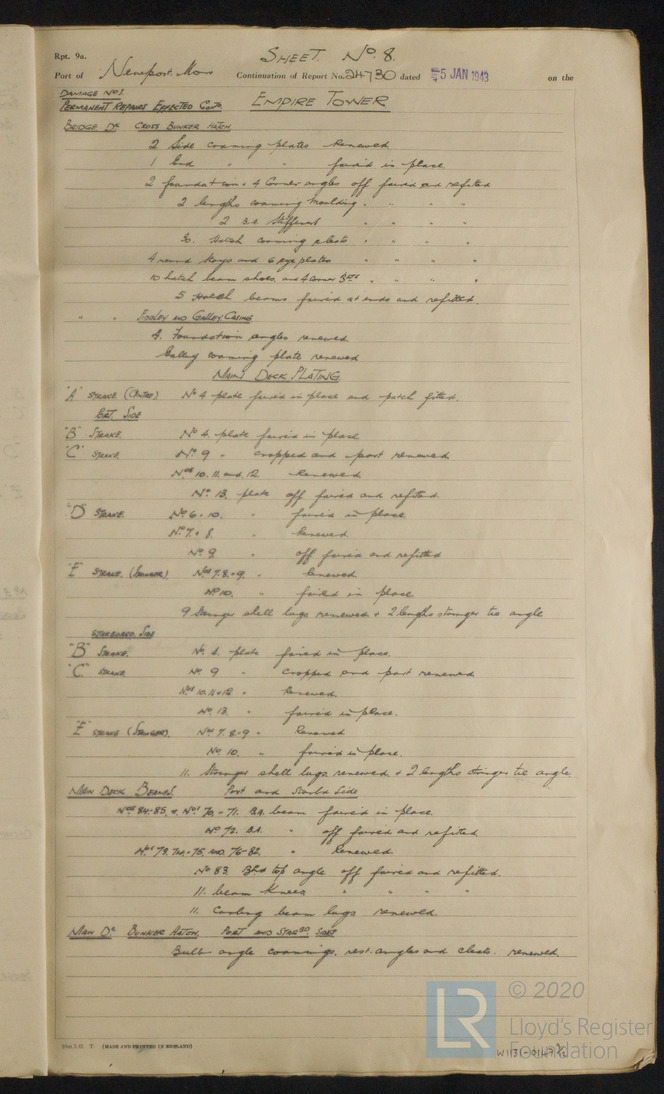 Rpt. 9a.
SHEET. No. 8.
Port of Newport. Mon Continuation of Report No. 24730 dated 5 JAN 1943 on the
DAMAGE No 1.
PERMANENT REPAIRS EFFECTED Contd. EMPIRE TOWER
BRIDGE Dk CROSS BUNKER HATCH.
2 Side coaming plates Renewed
1 End " " faired in place.
2 foundation & 4 Corner angles off faired and refitted
2 lengths coaming moulding " " " "
2 B.A. Stiffeners " " " "
30. Hatch coaming cleats " " " "
4 round keys and 6 eye plates " " " "
10 hatch beam shoes and 4 corner " " " "
5 Hatch beams faired at ends and refitted.
" " FIDLEY AND GALLEY CASING
4. Foundation angles renewed
Galley coaming plate renewed
MAIN DECK PLATING
"A" STRAKE (CENTRE) No 4 plate faired in place and patch fitted.
SIDE
"B" STRAKE No 4. plate faired in place
"C" STRAKE No. 9 " cropped and part renewed
Nos 10. 11. and. 12 Renewed
No. 13. plate off faired and refitted
"D" STRAKE. No 6 & 10. " faired in place
No 7. & 8. " Renewed.
No 9. " off faired and refitted
"E" STRAKE. (STRINGER) Nos 7. 8. & 9. " Renewed
No 10. " faired in place
9 Stringer shell lugs renewed & 2 lengths stringer tie angle
STARBOARD. SIDE
"B" STRAKE. No. 4. plate faired in place.
"C" STRAKE No. 9 " cropped and part renewed
Nos 10. 11 & 12 " Renewed.
No. 13. " faired in place.
"E" STRAKE (STRINGER). Nos 7. 8 & 9 " Renewed
No 10. " faired in place.
11. Stringer shell lugs renewed & 2 lengths stringer tie angle
MAIN DECK BEAMS. Port and Starbd Side
Nos 84-85. & Nos 70. & 71. B.A. beam faired in place
No 72. B.A. " off faired and refitted
Nos 73. 74. & 75. AND. 76-82. " Renewed
No 83. top angle off faired and refitted.
11. beam knees " " " "
11. Carling beam lugs renewed.
MAIN Dk BUNKER HATCH. PORT AND STARBD. SIDES
Bulb angle coamings, rest angles and cleats. renewed.
T. (MADE AND PRINTED IN ENGLAND)
LR
© 2020
Lloyd's Register
Foundation